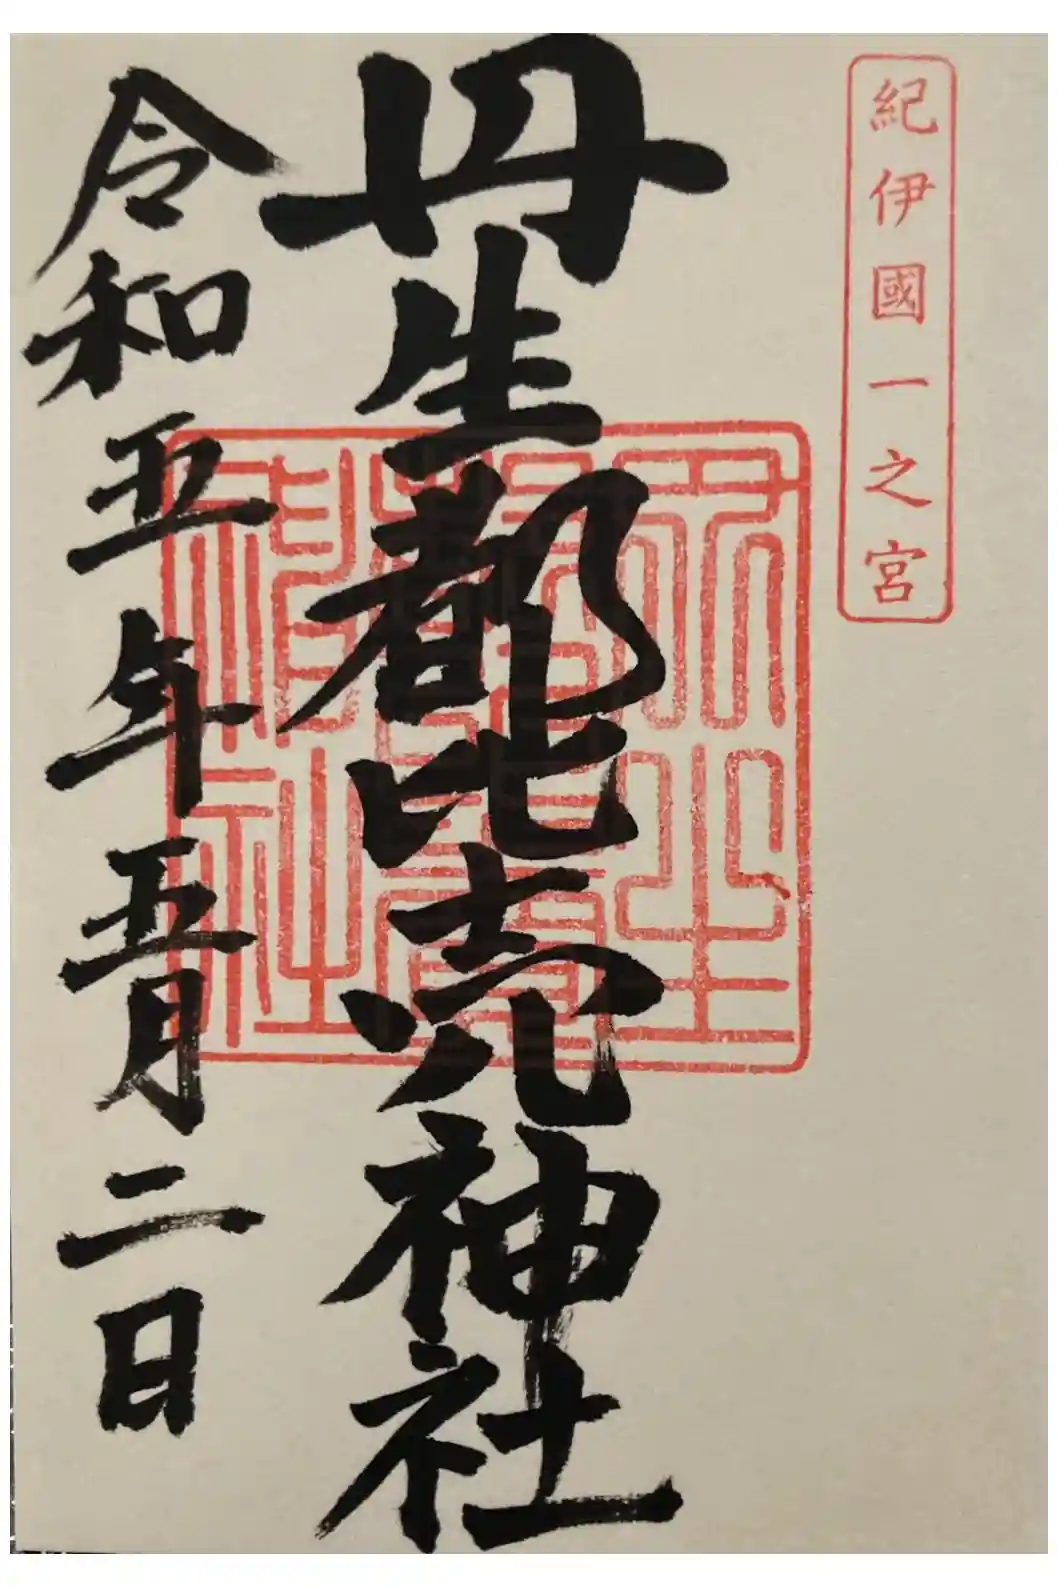 紀伊國一之宮
丹生都比売神社
令和五年五月二日